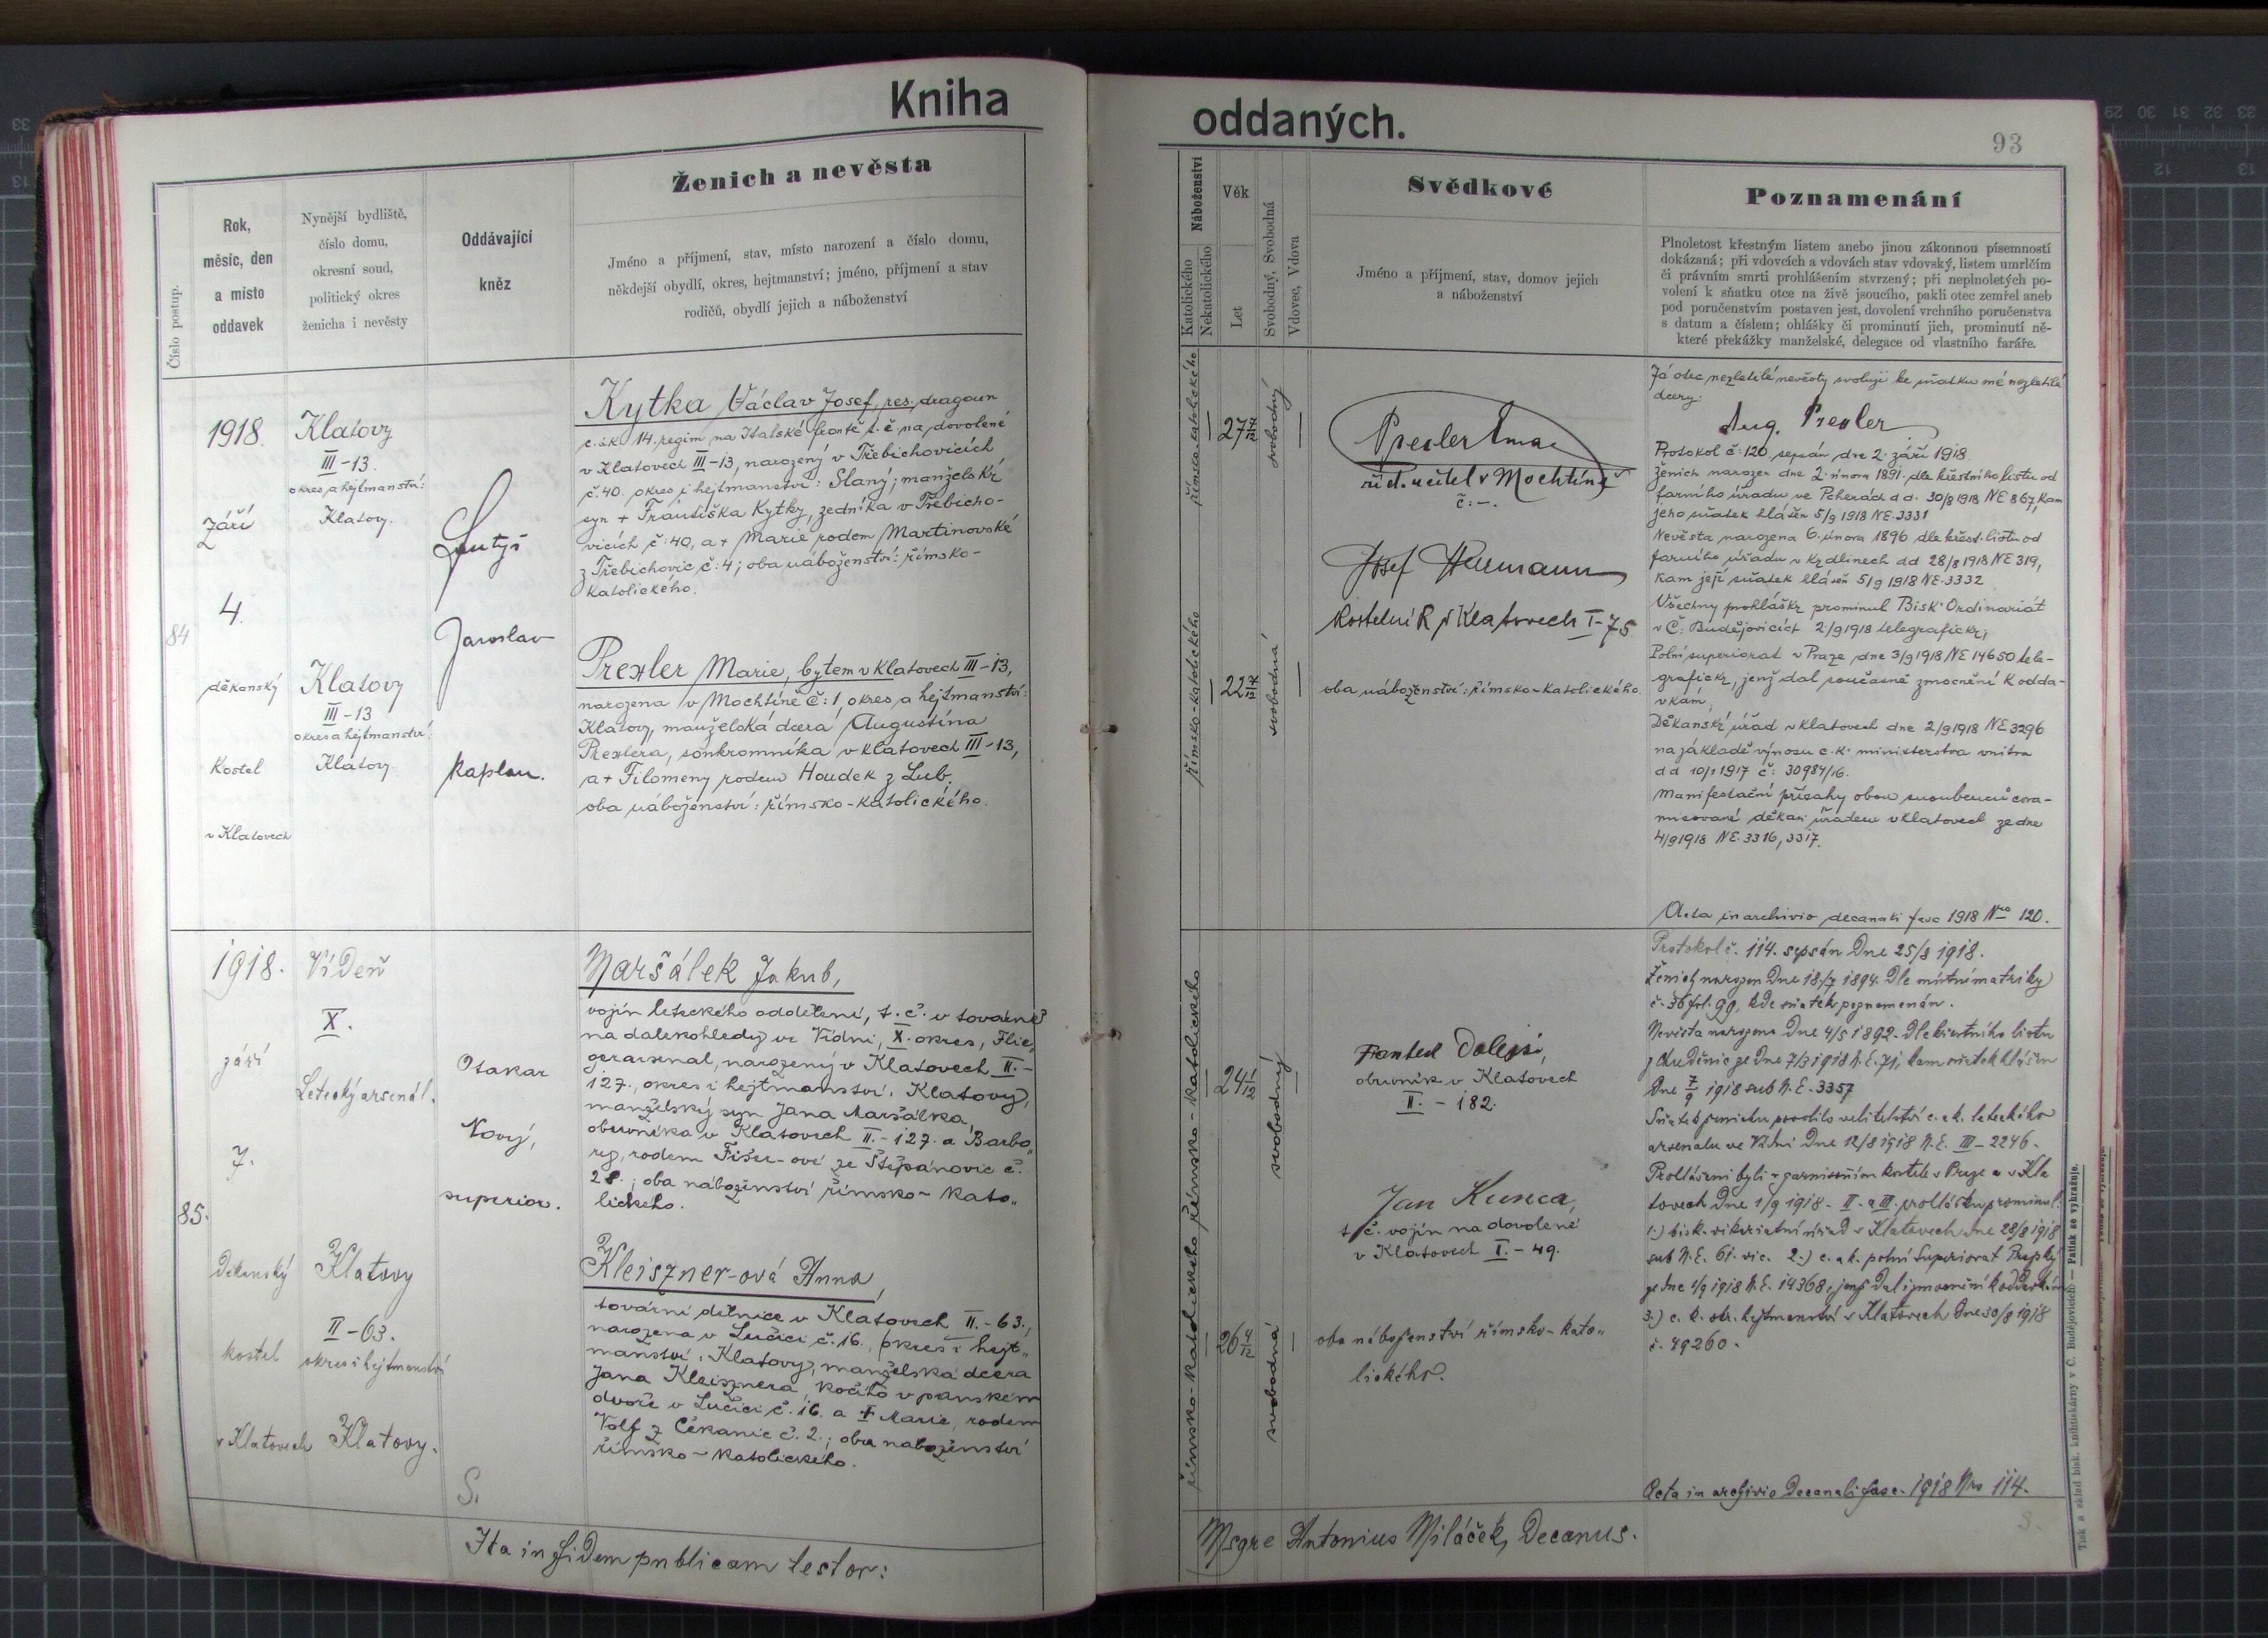 Kniha
oddaných.
93
Číslo postup.
Rok,
měsíc, den
a místo
oddavek
Nynější bydliště,
číslo domu,
okresní soud,
politický okres
ženicha i nevěsty
Oddávající
kněz
Ženich a nevěsta
Jméno a příjmení, stav, místo narození a číslo domu,
někdejší obydlí, okres, hejtmanství; jméno, příjmení a stav
rodičů, obydlí jejich a náboženství
Náboženství
Katolického
Nekatolického
Věk
Let
Svobodný, Svobodná
Vdovec, Vdova
Svědkové
Jméno a příjmení, stav, domov jejich
a náboženství
Poznamenání
Plnoletost křestným listem anebo jinou zákonnou písemností
dokázaná; při vdovcích a vdovách stav vdovský, listem umrlčím
či právním smrti prohlášením stvrzený; při neplnoletých po-
volení k sňatku otce na živě jsoucího, pakli otec zemřel aneb
pod poručenstvím postaven jest, dovolení vrchního poručenstva
s datum a číslem; ohlášky či prominutí jich, prominutí ně-
které překážky manželské, delegace od vlastního faráře.
84
1918.
září
4.
děkanský
kostel
v Klatovech
Klatovy
III-13.
okres a hejtmanství:
Klatovy.
Klatovy
III-13
okres a hejtmanství:
Klatovy
Jaroslav
kaplan.
Kytka Václav Josef, res. dragoun
c. a k. 14. regim na Italské frontě t. č. na dovolené
v Klatovech III-13, narozený v Třebichovicích
č. 40. okres i hejtmanství: Slaný; manželský
syn + Františka Kytky, zedníka v Třebicho-
vicích č: 40, a + Marie rodem Martinovské
z Třebichovic č: 4; oba náboženství: římsko-
katolického.
Prexler Marie, bytem v Klatovech III-13,
narozena v Mochtíně č: 1, okres a hejtmanství:
Klatovy, manželská dcera Augustina
Prexlera, soukromníka v Klatovech III-13,
a + Filomeny rodem Houdek z Lub.
oba náboženství: římsko-katolického.
římsko-katolického
27
svobodný
římsko-katolického
22
svobodná
Prexler
říd. učitel v Mochtíně
č: -.
Josef
kostelník v Klatovech I-75
oba náboženství: římsko-katolického.
Já otec nezletilé nevěsty svoluji ke sňatku mé nezletilé
dcery:
Aug. Prexler
Protokol č: 120. sepsán dne 2. září 1918.
Ženich narozen dne 2. února 1891. dle křestního listu od
farního úřadu ve Pcherách d d. 30/8 1918 NE 867, kam
jeho sňatek hlášen 5/9 1918 NE. 3331
Nevěsta narozena 6. února 1896 dle křest. listu od
farního úřadu v Kydlinech dd 28/8 1918 NE 319,
kam její sňatek hlášen 5/9 1918 NE. 3332
Všechny prohlášky prominul Bisk. Ordinariát
v Č. Budějovicích 2/9 1918 telegraficky;
Polní superiorat v Praze dne 3/9 1918 NE 14650 tele-
graficky, jenž dal současně zmocnění k odda-
vkám;
Děkanský úřad v Klatovech dne 2/9 1918 NE 3296
na základě výnosu c. k. ministerstva vnitra
dd 10/1 1917 č: 30984/16.
Manifestační přísahy obou snoubenců cora-
misované děkan. úřadem v Klatovech ze dne
4/9 1918 NE. 3316, 3317.
Acta in archivio decanali fasc 1918 Nro 120.
85.
1918.
září
7.
Děkanský
kostel
v Klatovech
Vídeň
X.
Letecký arsenál.
Klatovy
II-63.
okres i hejtmanství
Klatovy.
Otakar
Nový,
superior.
S.
Maršálek Jakub,
vojín leteckého oddělení, t. č. v továrně
na dalekohledy ve Vídni, X. okres, Flie,
gerarsenal, narozený v Klatovech II.-
127., okres i hejtmanství: Klatovy,
manželský syn Jana Maršálka,
obuvníka v Klatovech II.-127. a Barbo„
ry, rodem Fišer-ové ze Štěpánovic č.
28.; oba náboženství římsko-kato„
lického.
Kleiszner-ová Anna,
tovární dělnice v Klatovech II.-63.,
narozena v Lučici č. 16., okres i hejt„
manství: Klatovy, manželská dcera
Jana Kleisznera, kočího v panském
dvoře v Lučici č. 16. a + Marie, rodem
Volf z Čekanic č. 2.; oba náboženství
římsko-katolického.
římsko-katolického
24 1/12
svobodný
římsko-katolického
26 4/12
svobodná
Dolejší,
obuvník v Klatovech
II. - 182.
Jan Kunca,
t. č. vojín na dovolené
v Klatovech I. - 49.
oba náboženství římsko-kato„
lického.
Protokol č. 114. sepsán dne 25/8 1918.
Ženich narozen dne 18./7 1894. dle místní matriky
č. 36 fol. 99, kde sňatek poznamenán.
Nevěsta narozena dne 4/5 1892. dle křestního listu
z Chuděnic ze dne 7/3 1918 N. E. 71, kam sňatek hlášen
dne 7/9 1918 sub N. E. 3357
Sňatek ženichu povolilo velitelství c. a k. leteckého
arsenalu ve Vídni dne 12/8 1918 N. E. III-2246.
Prohlášeni byli v garnisoním kostele v Praze a v Kla
tovech dne 1/9 1918. II. a III. prohlášku prominul:
1.) bisk. vikariatní úřad v Klatovech dne 28/8 1918
sub N. E. 61. vic. 2.) c. a k. polní Superiorat Pražský
ze dne 1/9 1918 N. E. 14368, jenž dal i zmocnění k oddavkám
3.) c. k. okr. hejtmanství v Klatovech dne 30/8 1918
č. 49260.
Acta in archivio Decanali fasc. 1918 Nro 114.
S.
Ita in fidem publicam testor:
Msgre Antonius Miláček, Decanus.
Tisk a sklad bisk. knihtiskárny v Č. Budějovicích. — Patisk se vyhražuje.